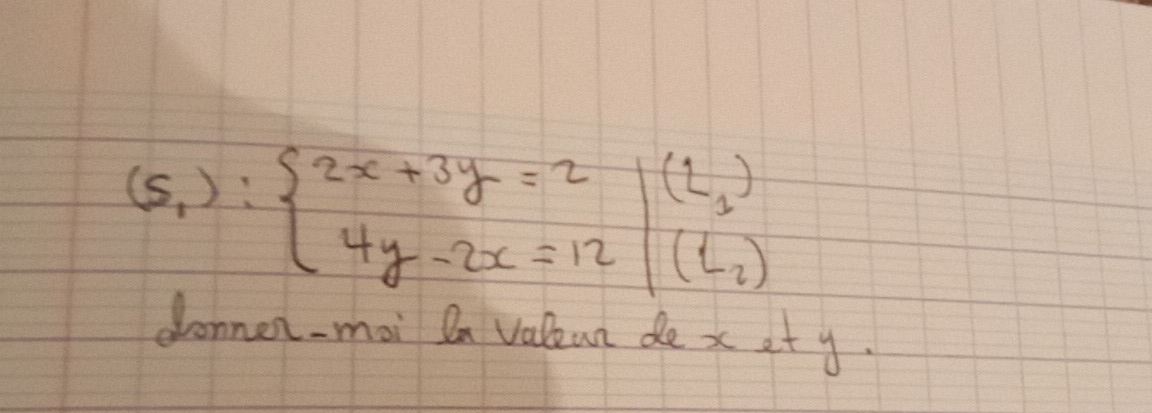 (S₁) : { 2x + 3y = 2 | (L₁)
4y - 2x = 12 | (L₂)
donner-moi la valeur de x et y.